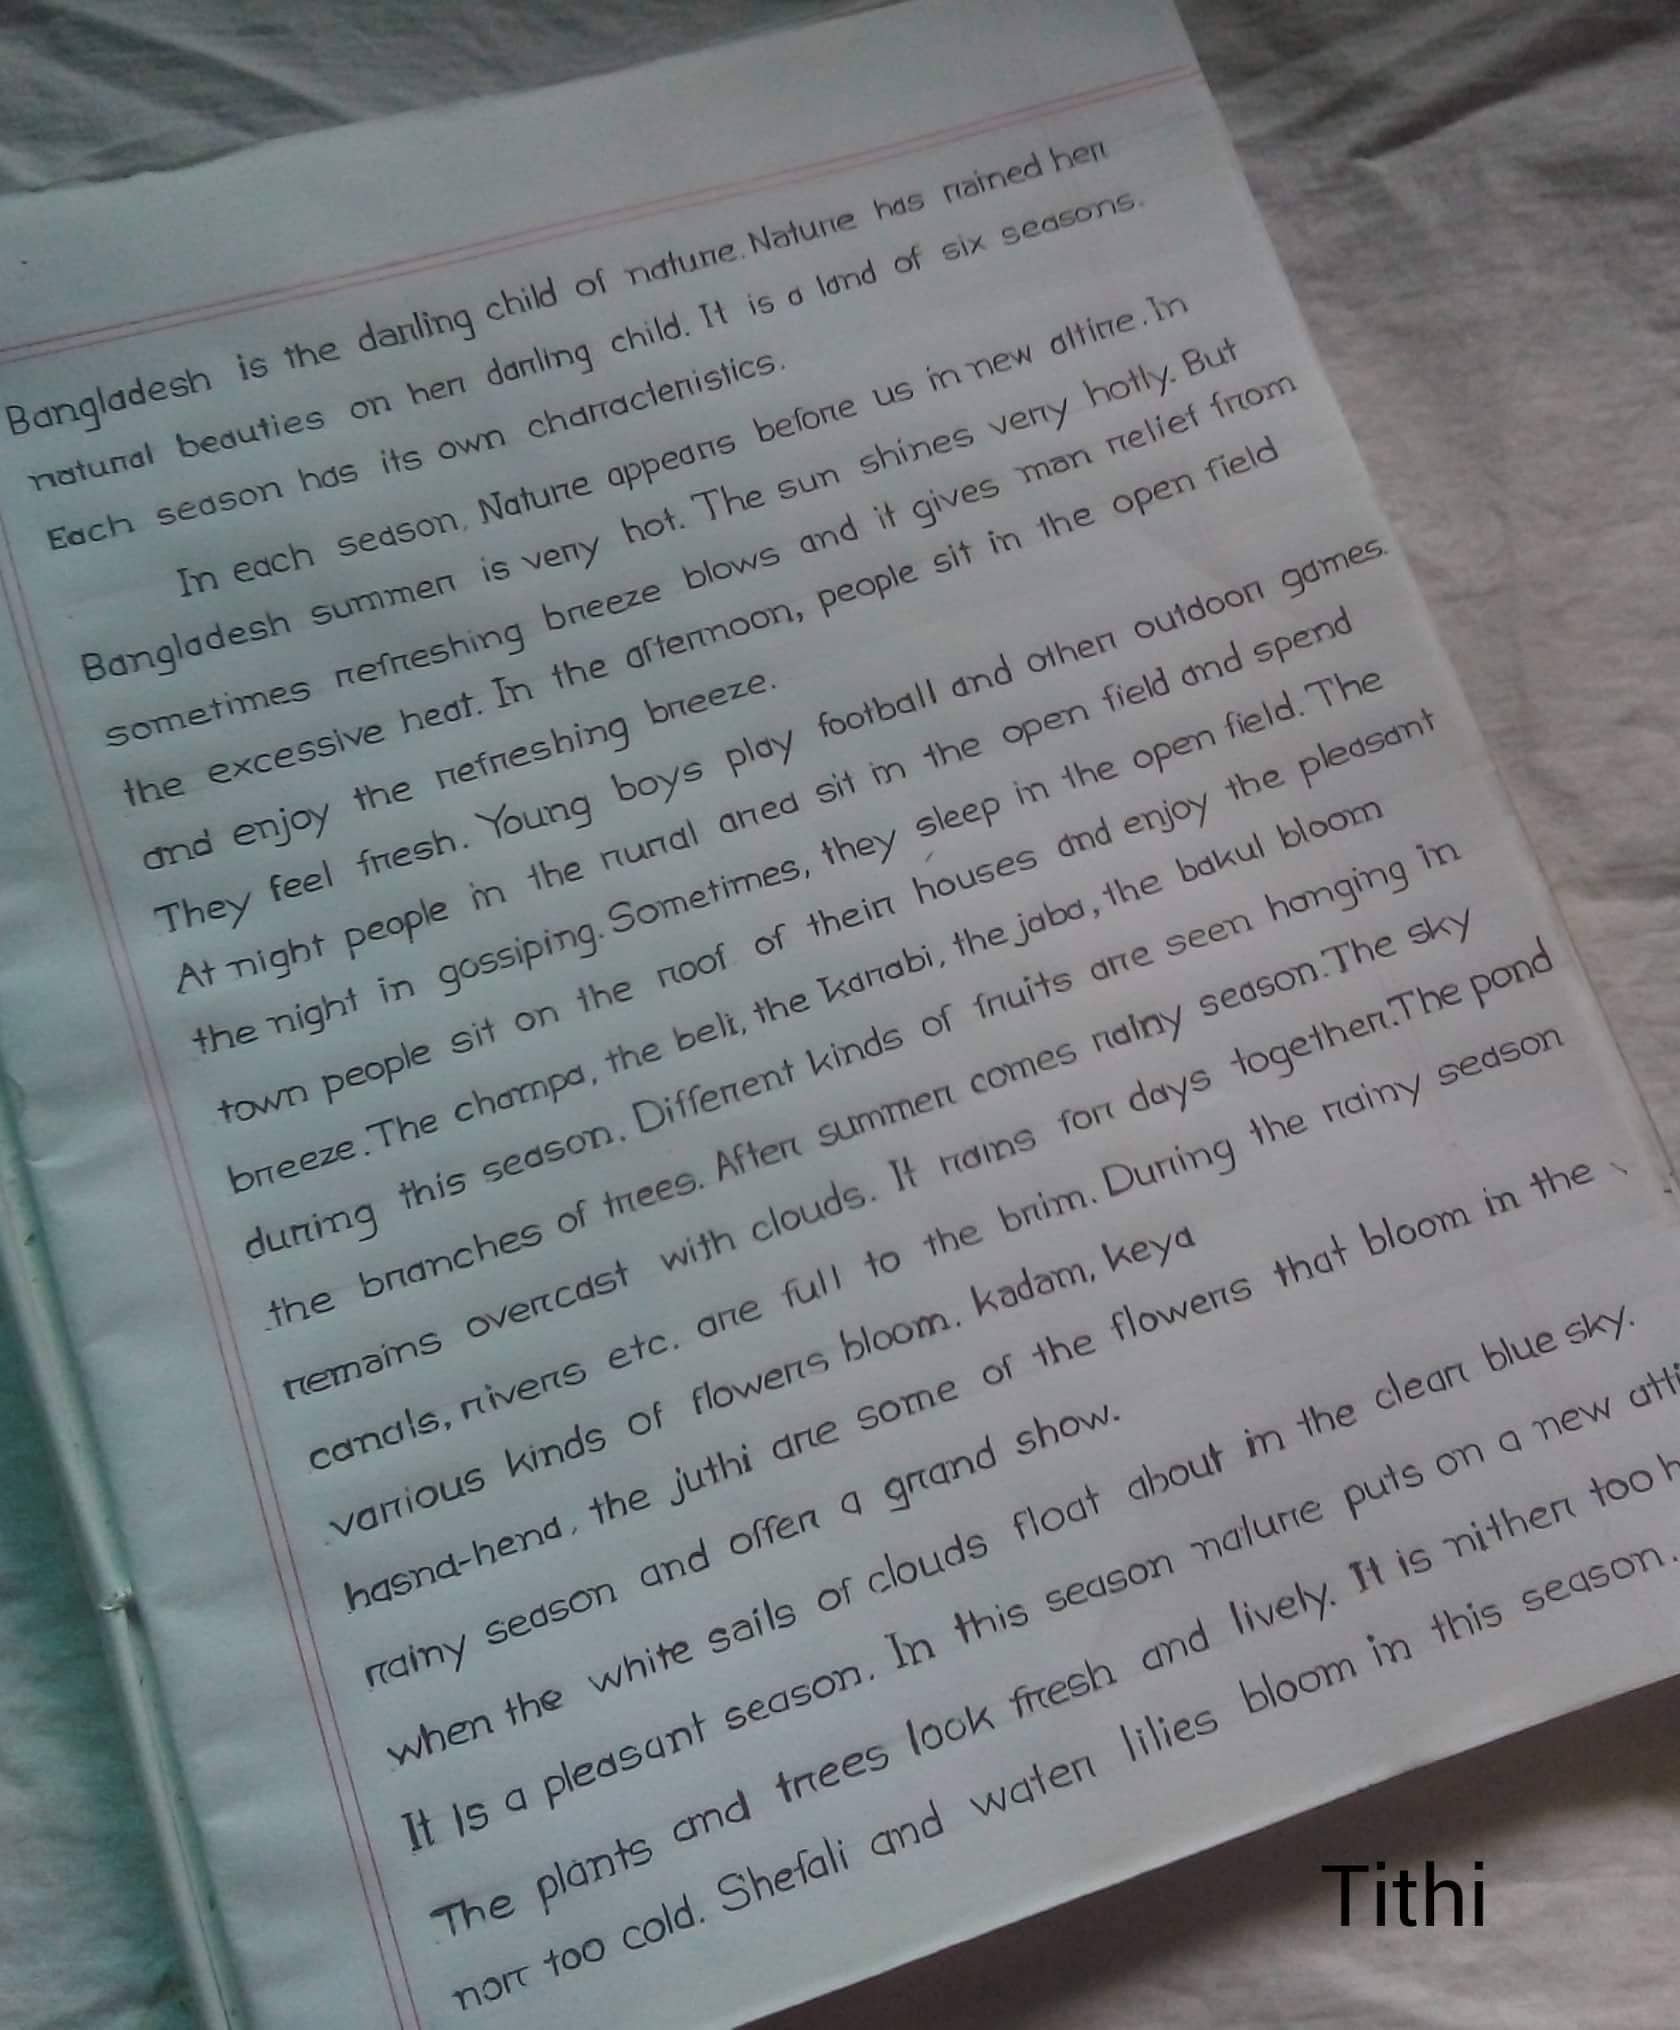 Bangladesh is the darling child of nature. Nature has rained her
natural beauties on her darling child. It is a land of six seasons.
Each season has its own characteristics.
In each season, Nature appears before us in new altire. In
Bangladesh summer is very hot. The sun shines very hotly. But
sometimes refreshing breeze blows and it gives man relief from
the excessive heat. In the afternoon, people sit in the open field
and enjoy the refreshing breeze.
They feel fresh. Young boys play football and other outdoor games.
At night people in the rural ared sit in the open field and spend
the night in gossiping. Sometimes, they sleep in the open field. The
town people sit on the roof of their houses and enjoy the pleasant
breeze. The champa, the beli, the karabi, the jaba, the bakul bloom
during this season. Different kinds of fruits are seen hanging in
the branches of trees. After summer comes rainy season. The sky
remains overcast with clouds. It rains for days together. The pond
canals, rivers etc. are full to the brim. During the rainy season
various kinds of flowers bloom. kadam, keya
hasna-hena, the juthi are some of the flowers that bloom in the
rainy season and offer a grand show.
when the white sails of clouds float about in the clear blue sky.
It is a pleasant season. In this season nature puts on a new atti
The plants and trees look fresh and lively. It is nither too h
nor too cold. Shefali and water lilies bloom in this season.
Tithi